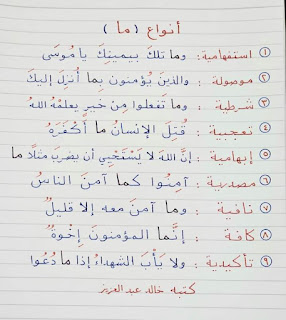 أنواع ( ما )
١ استفهامية : وما تلكَ بيمينِكَ يا مُوسَى
٢ موصولة : والذينَ يُؤمنون بِما أُنزِلَ إليكَ
٣ شرطية : وما تفعلوا مِن خيرٍ يعلمْهُ اللهُ
٤ تعجبية : قُتِلَ الإنسانُ ما أكْفَرَهُ
٥ إبهامية : إنَّ اللهَ لا يَسْتَحْيِي أن يضربَ مثلًا ما
٦ مصدرية : آمِنُوا كما آمنَ الناسُ
٧ نافية : وما آمنَ معه إلا قليلٌ
٨ كافة : إنَّما المؤمنونَ إخْوةٌ
٩ تأكيدية : ولا يَأْبَ الشهداءُ إذا ما دُعُوا
كتبه خالد عبد العزيز